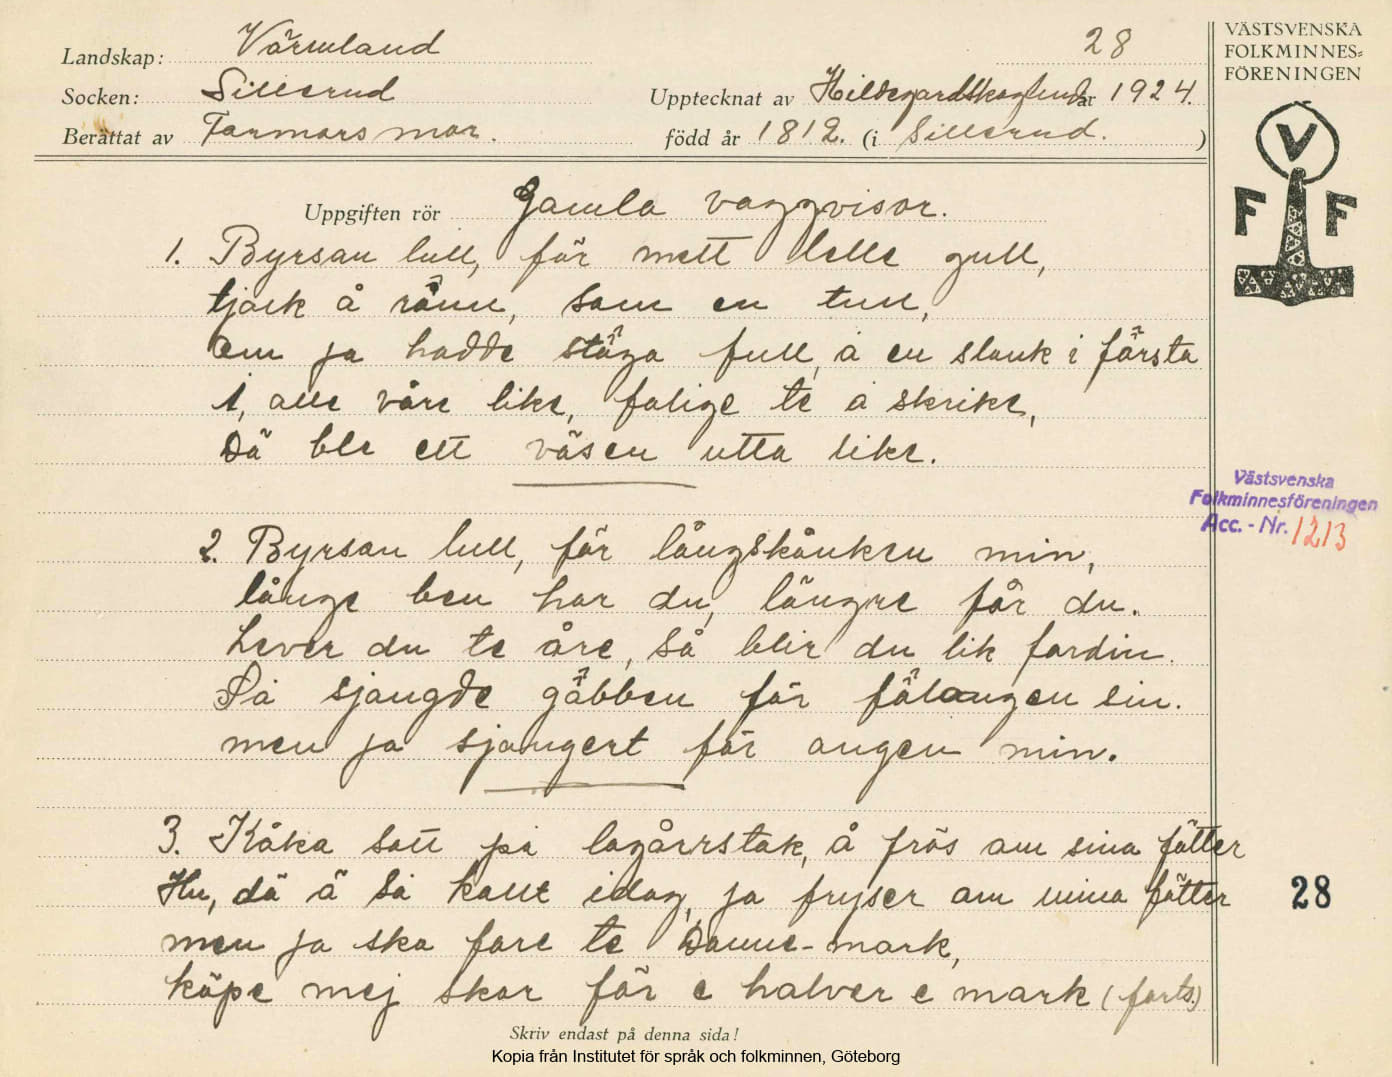 Landskap: Värmland 28
Socken: Sillerud Upptecknat av Hildegard Skoglund år 1924.
Berättat av Farmors mor. född år 1812. (i Sillerud. )
VÄSTSVENSKA
FOLKMINNES=
FÖRENINGEN
V
F F
Uppgiften rör Gamla vaggvisor.
1. Byrsan lull, för mett lelle gull,
tjock å rönn, som en tull,
Om ja hadde stöga full, å en slank i första
i, alle våre like, falige te å skrike,
Dä ble ett väsen utta like.
Västsvenska
Folkminnesföreningen
Acc. - Nr. 1213
2. Byrsan lull, för långskånken min,
långe ben har du, längre får du.
Lever du te åre, så blir du lik fardin.
Så sjangde göbben för fölangen sin.
men ja sjangert för angen min.
3. Kråka satt på lagårrstak, å frös om sina fötter
Hu, dä ä så kallt idag, ja fryser om mina fötter
28
men ja ska fare te Danne-mark,
köpe mej skor för e halver e mark (forts.)
Skriv endast på denna sida!
Kopia från Institutet för språk och folkminnen, Göteborg